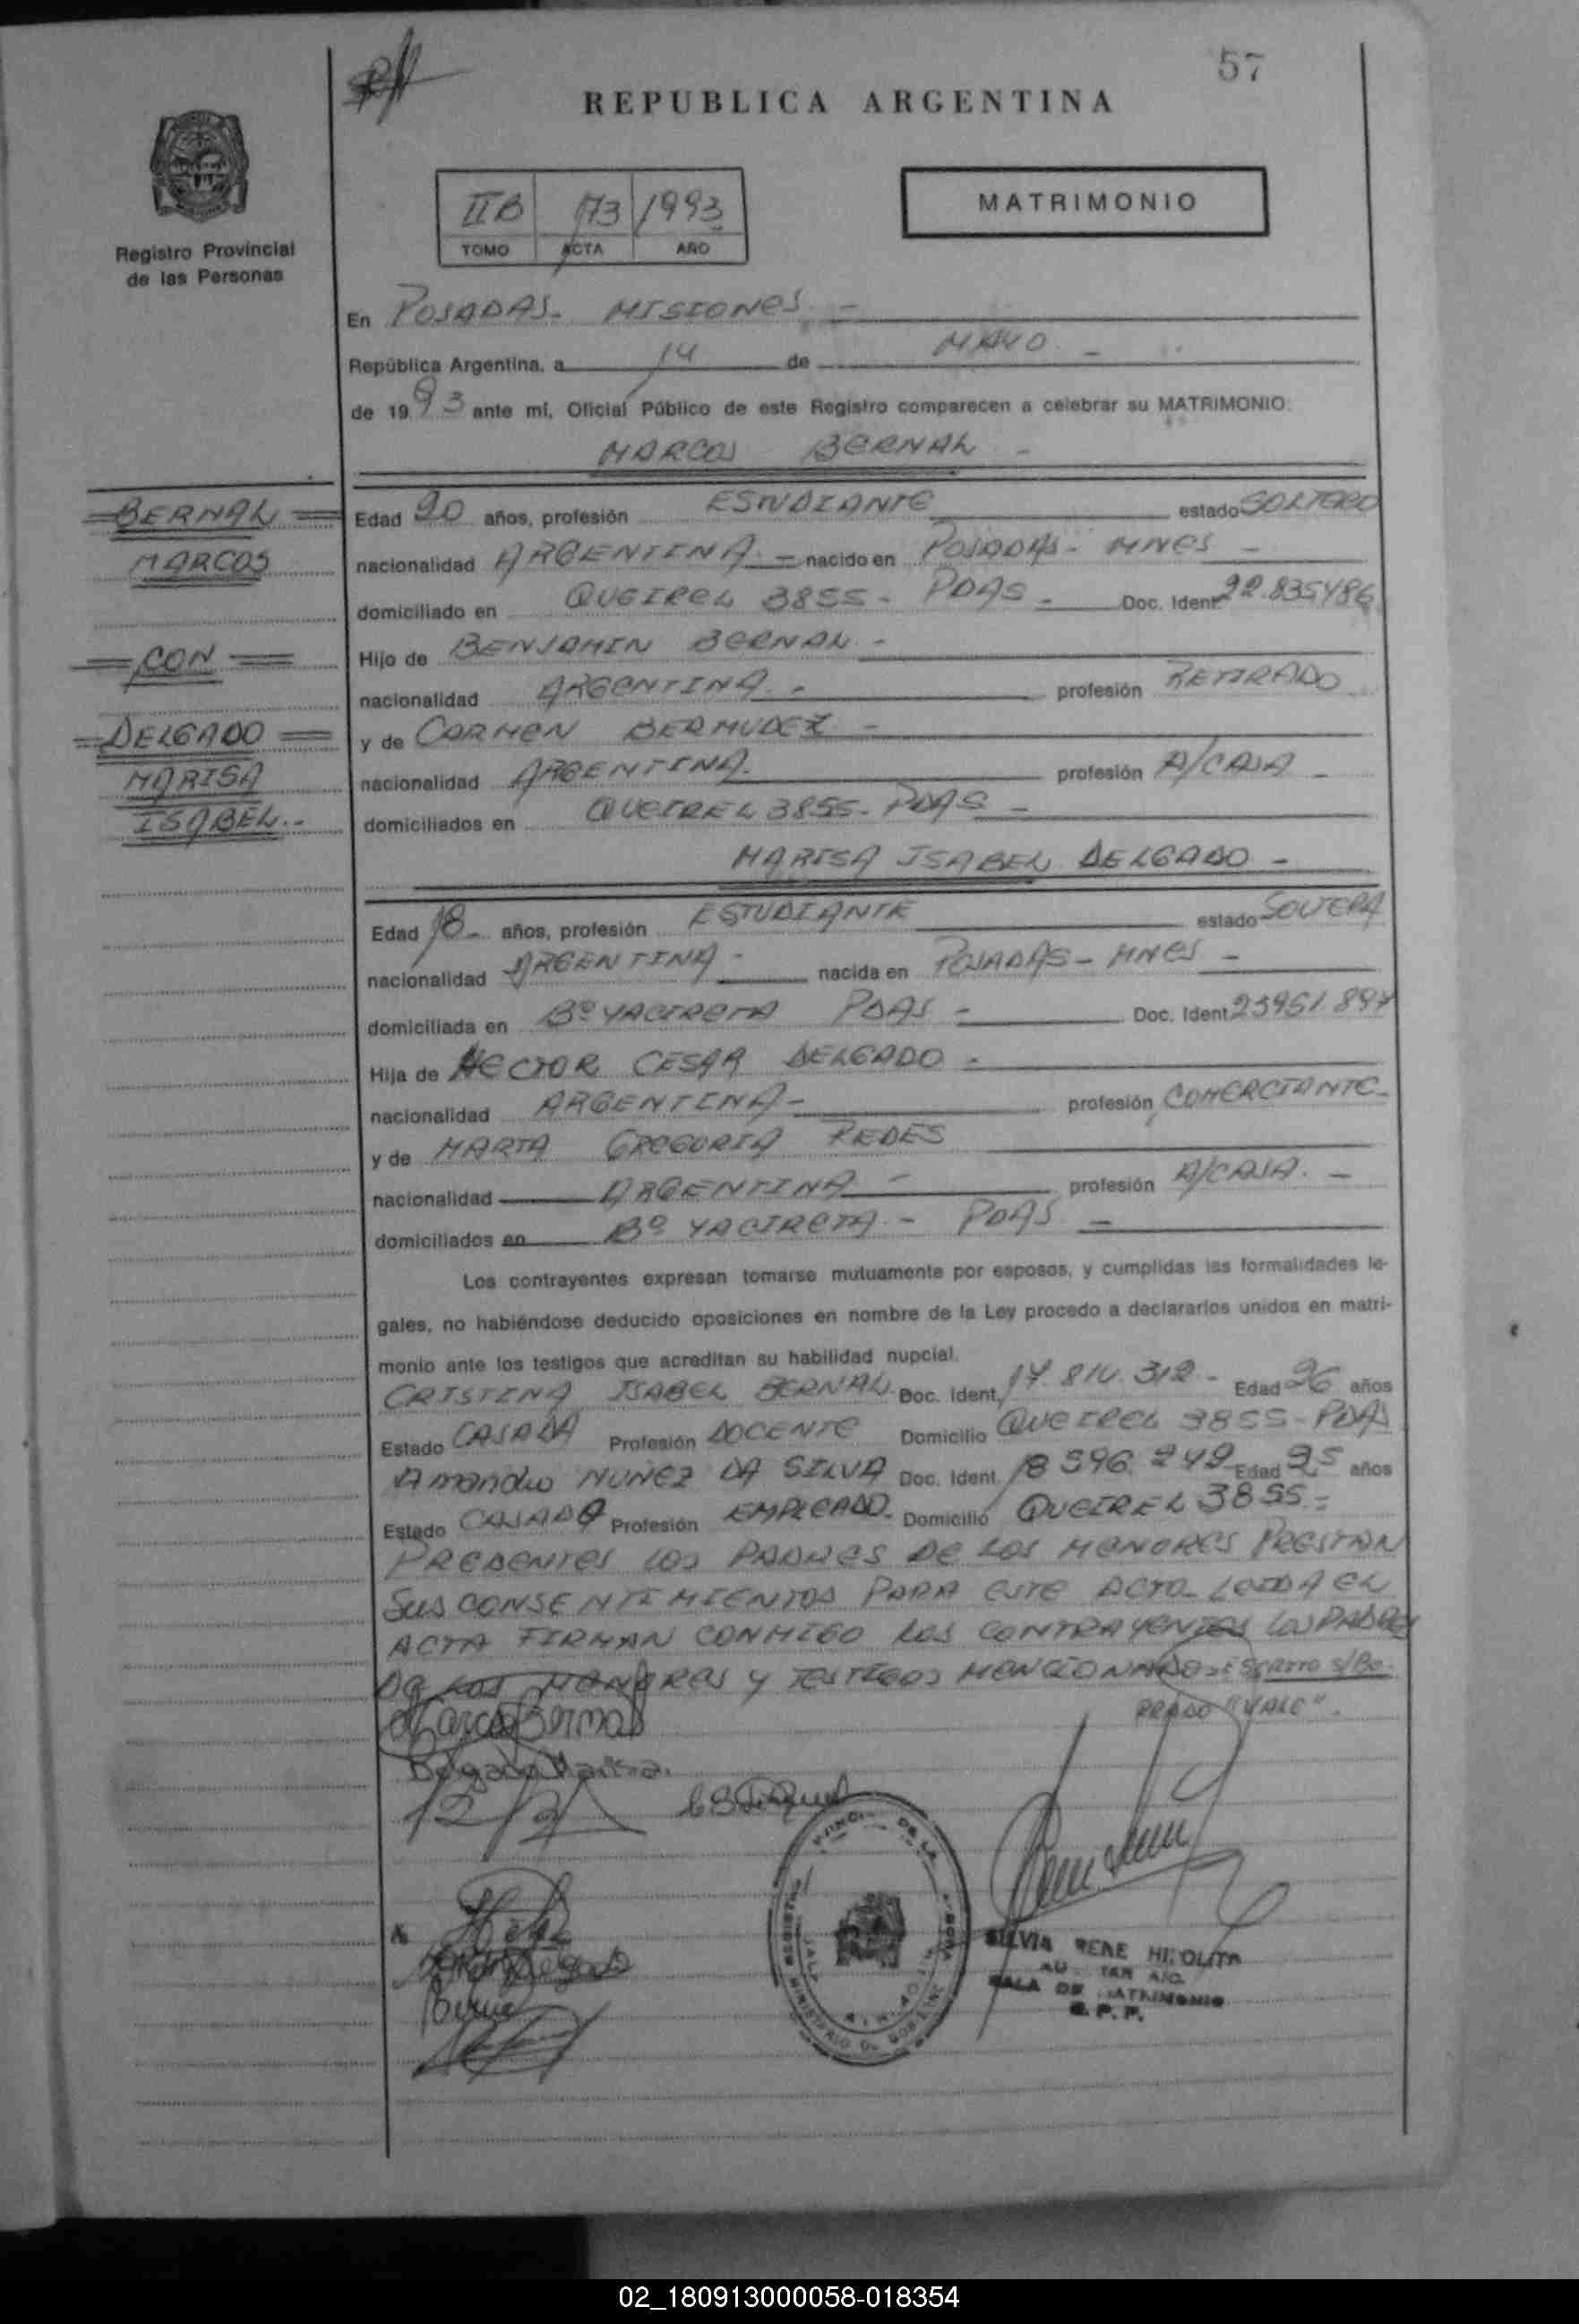 57
REPUBLICA ARGENTINA
IIB 173 1993
TOMO ACTA AÑO
MATRIMONIO
Registro Provincial
de las Personas
En POSADAS - MISIONES -
República Argentina, a 14 de MAYO -
de 1993 ante mí, Oficial Público de este Registro comparecen a celebrar su MATRIMONIO:
MARCOS BERNAL -
BERNAL
MARCOS
CON
DELGADO
MARISA
ISABEL.-
Edad 20 años, profesión ESTUDIANTE estado SOLTERO
nacionalidad ARGENTINA - nacido en POSADAS - MNES -
domiciliado en QUEIREL 3855 - PDAS - Doc. Ident. 22.835486
Hijo de BENJAMIN BERNAL -
nacionalidad ARGENTINA - profesión RETIRADO
y de CARMEN BERMUDEZ -
nacionalidad ARGENTINA. profesión A/CASA -
domiciliados en QUEIREL 3855 - PDAS -
MARISA ISABEL DELGADO -
Edad 18 - años, profesión ESTUDIANTE estado SOLTERA
nacionalidad ARGENTINA - nacida en POSADAS - MNES -
domiciliada en Bº YACIRETA PDAS - Doc. Ident. 23951.897
Hija de HECTOR CESAR DELGADO -
nacionalidad ARGENTINA - profesión COMERCIANTE -
y de MARTA GREGORIA REDES
nacionalidad ARGENTINA - profesión A/CASA. -
domiciliados en Bº YACIRETA - PDAS -
Los contrayentes expresan tomarse mutuamente por esposos, y cumplidas las formalidades le-
gales, no habiéndose deducido oposiciones en nombre de la Ley procedo a declararlos unidos en matri-
monio ante los testigos que acreditan su habilidad nupcial.
CRISTINA ISABEL BERNAL Doc. Ident. 17.814.312 - Edad 26 años
Estado CASADA Profesión DOCENTE Domicilio QUEIREL 3855 - PDAS
Amandio NUNEZ DA SILVA Doc. Ident. 18 596 249 Edad 25 años
Estado CASADO Profesión EMPLEADO. Domicilio QUEIREL 3855 -
PRESENTES LOS PADRES DE LOS MENORES PRESTAN
SUS CONSENTIMIENTOS PARA ESTE ACTO - LEIDA EL
ACTA FIRMAN CONMIGO LOS CONTRAYENTES LOS PADRES
DE LOS MENORES Y TESTIGOS MENCIONADOS - ESCRITO S/BO-
RRADO "VALE".
Marcos Bernal
Delgado Marisa.
SILVIA RENE HIPOLITA
SALA DE MATRIMONIO
R. P. P.
02_180913000058-018354